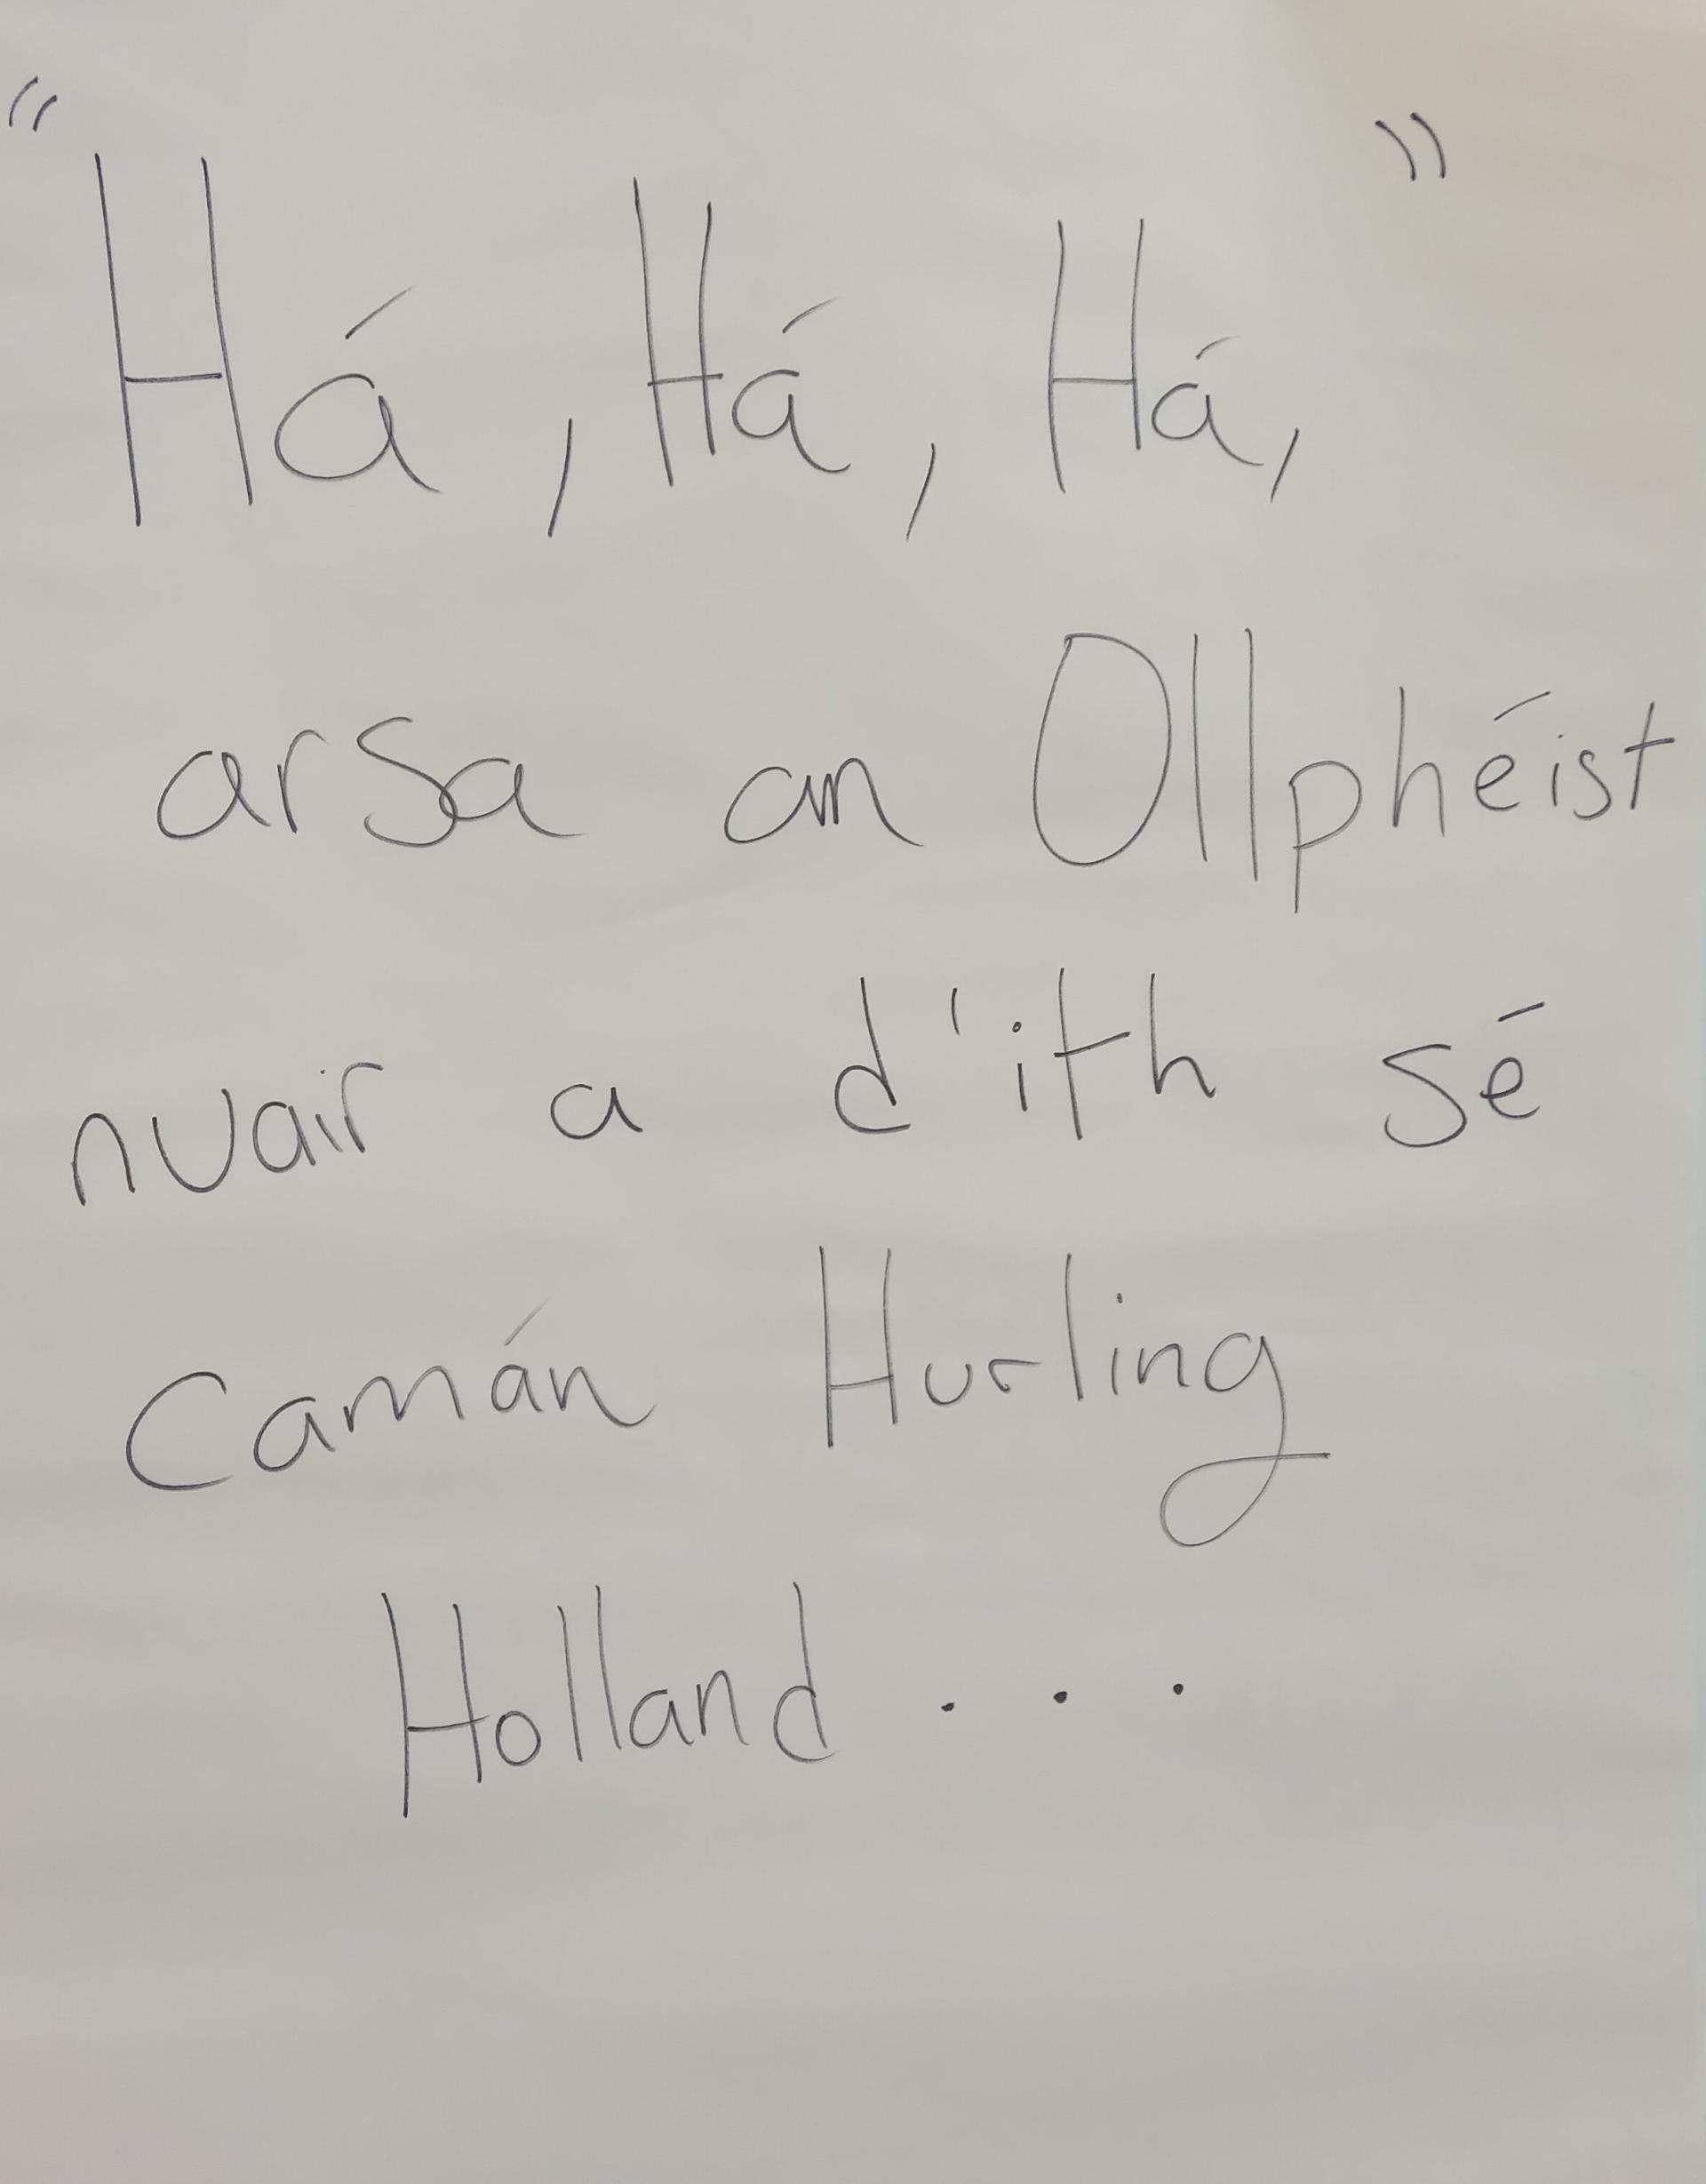 "Há, Há, Há,"
arsa an Ollphéist
nuair a d'ith sé
Camán Hurling
Holland...